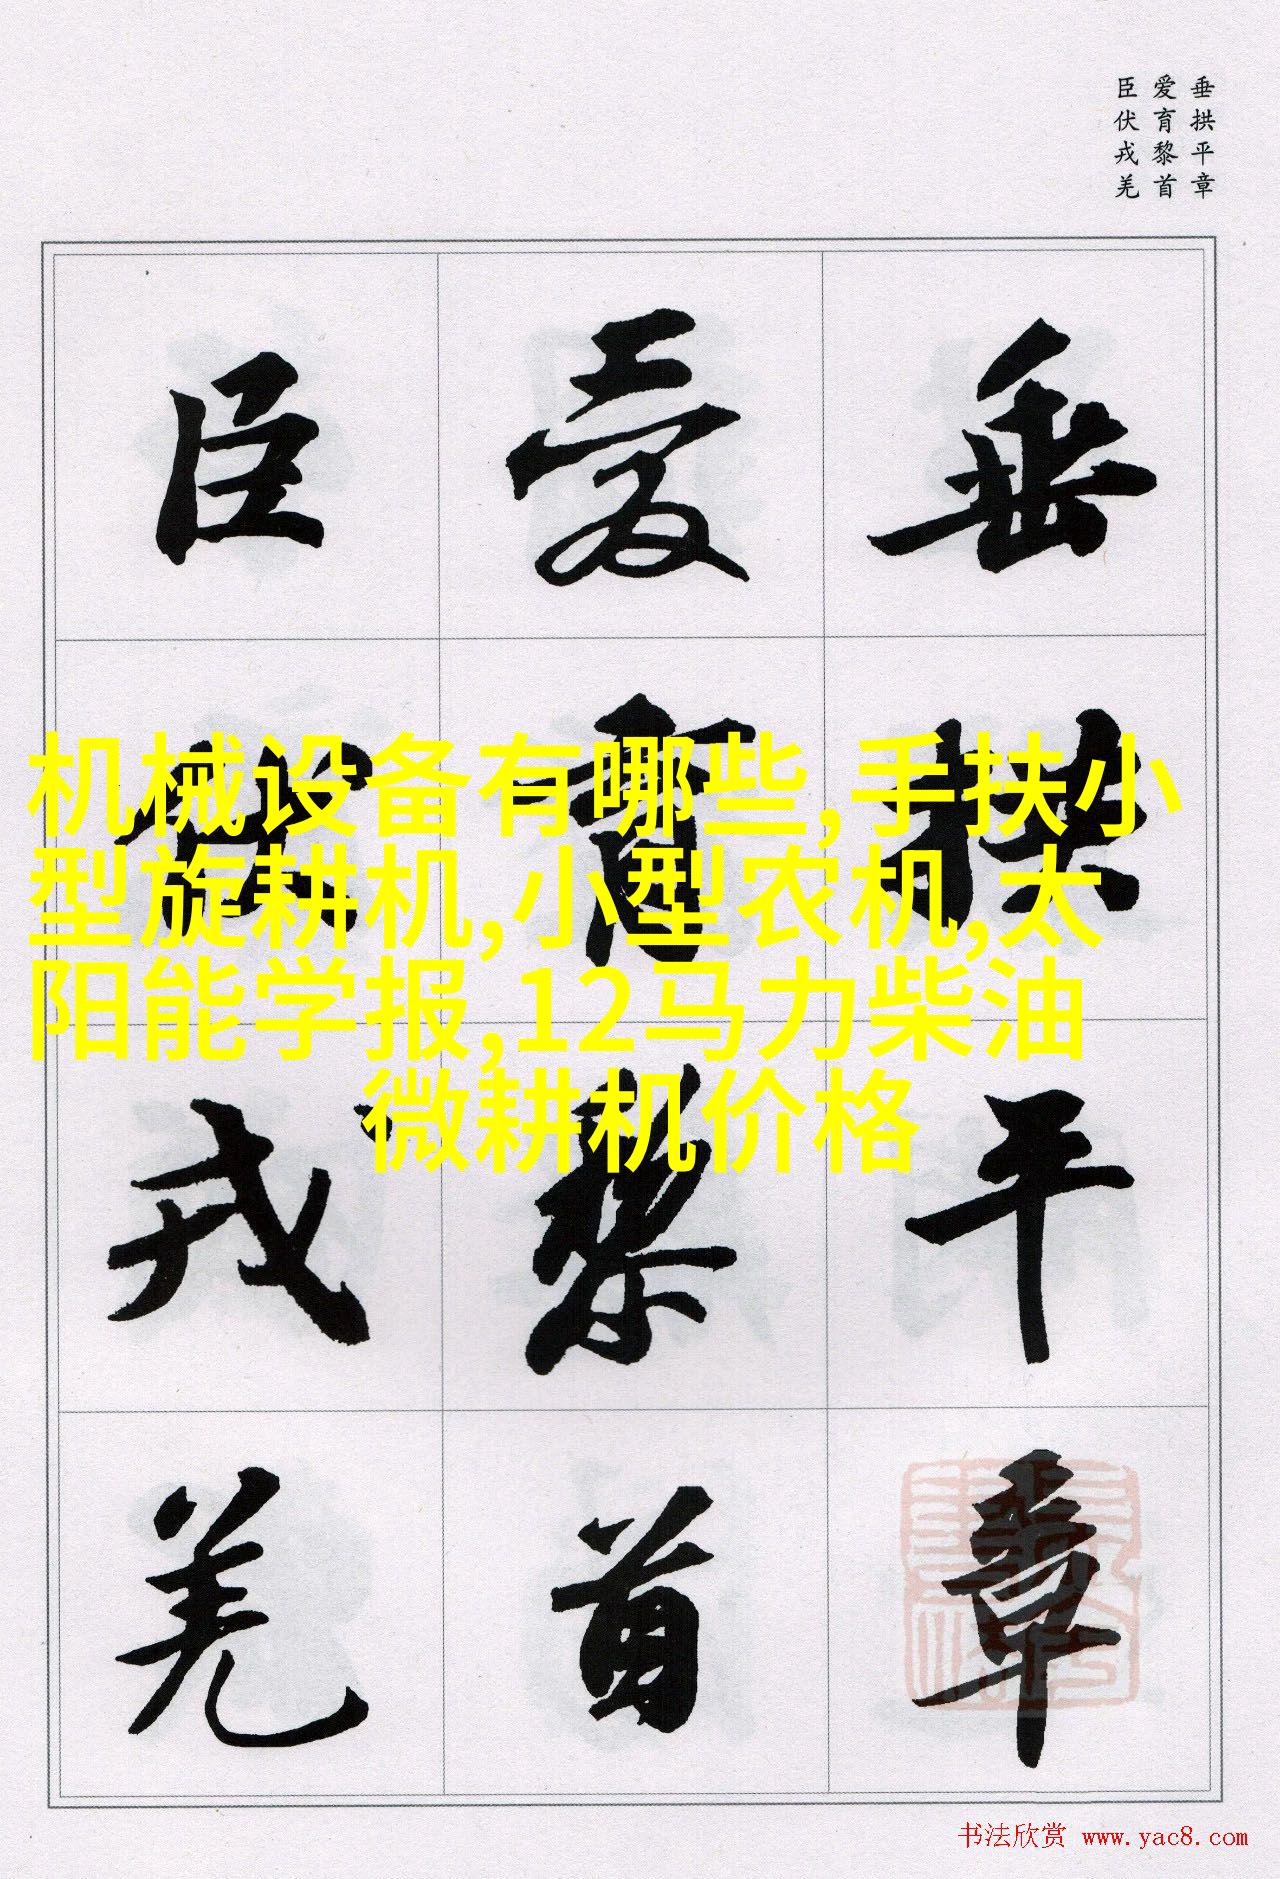 垂拱平章
爱育黎首
臣伏戎羌
垂拱平章
爱育黎首
臣伏戎羌
机械设备有哪些,手扶小
型旋耕机,小型农机,太
阳能学报,12马力柴油
微耕机价格
书法欣赏 www.yac8.com